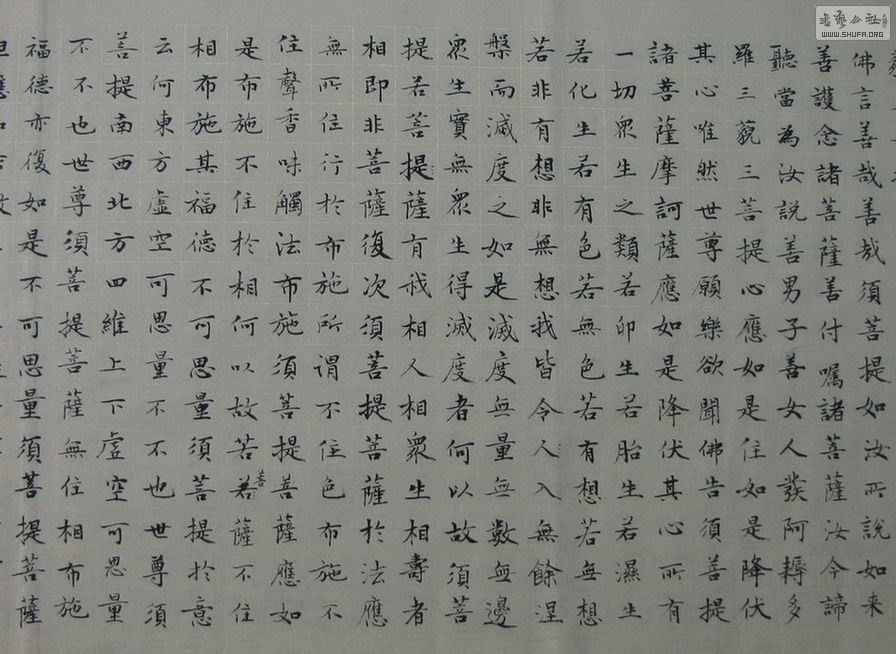 书艺公社
WWW.SHUFA.ORG
佛言善哉善哉須菩提如汝所說如来
善護念諸菩薩善付囑諸菩薩汝今諦
聽當為汝說善男子善女人發阿耨多
羅三藐三菩提心應如是住如是降伏
其心唯然世尊願樂欲聞佛告須菩提
諸菩薩摩訶薩應如是降伏其心所有
一切眾生之類若卵生若胎生若濕生
若化生若有色若無色若有想若無想
若非有想非無想我皆令人入無餘涅
槃而滅度之如是滅度無量無數無邊
眾生實無眾生得滅度者何以故須菩
提若菩提薩有我相人相眾生相壽者
相即非菩薩復次須菩提菩薩於法應
無所住行於布施所謂不住色布施不
住聲香味觸法布施須菩提菩薩應如
是布施不住於相何以故若若菩薩不住
相布施其福德不可思量須菩提於意
云何東方虛空可思量不不也世尊須
菩提南西北方四維上下虛空可思量
不不也世尊須菩提菩薩無住相布施
福德亦復如是不可思量須菩提菩薩